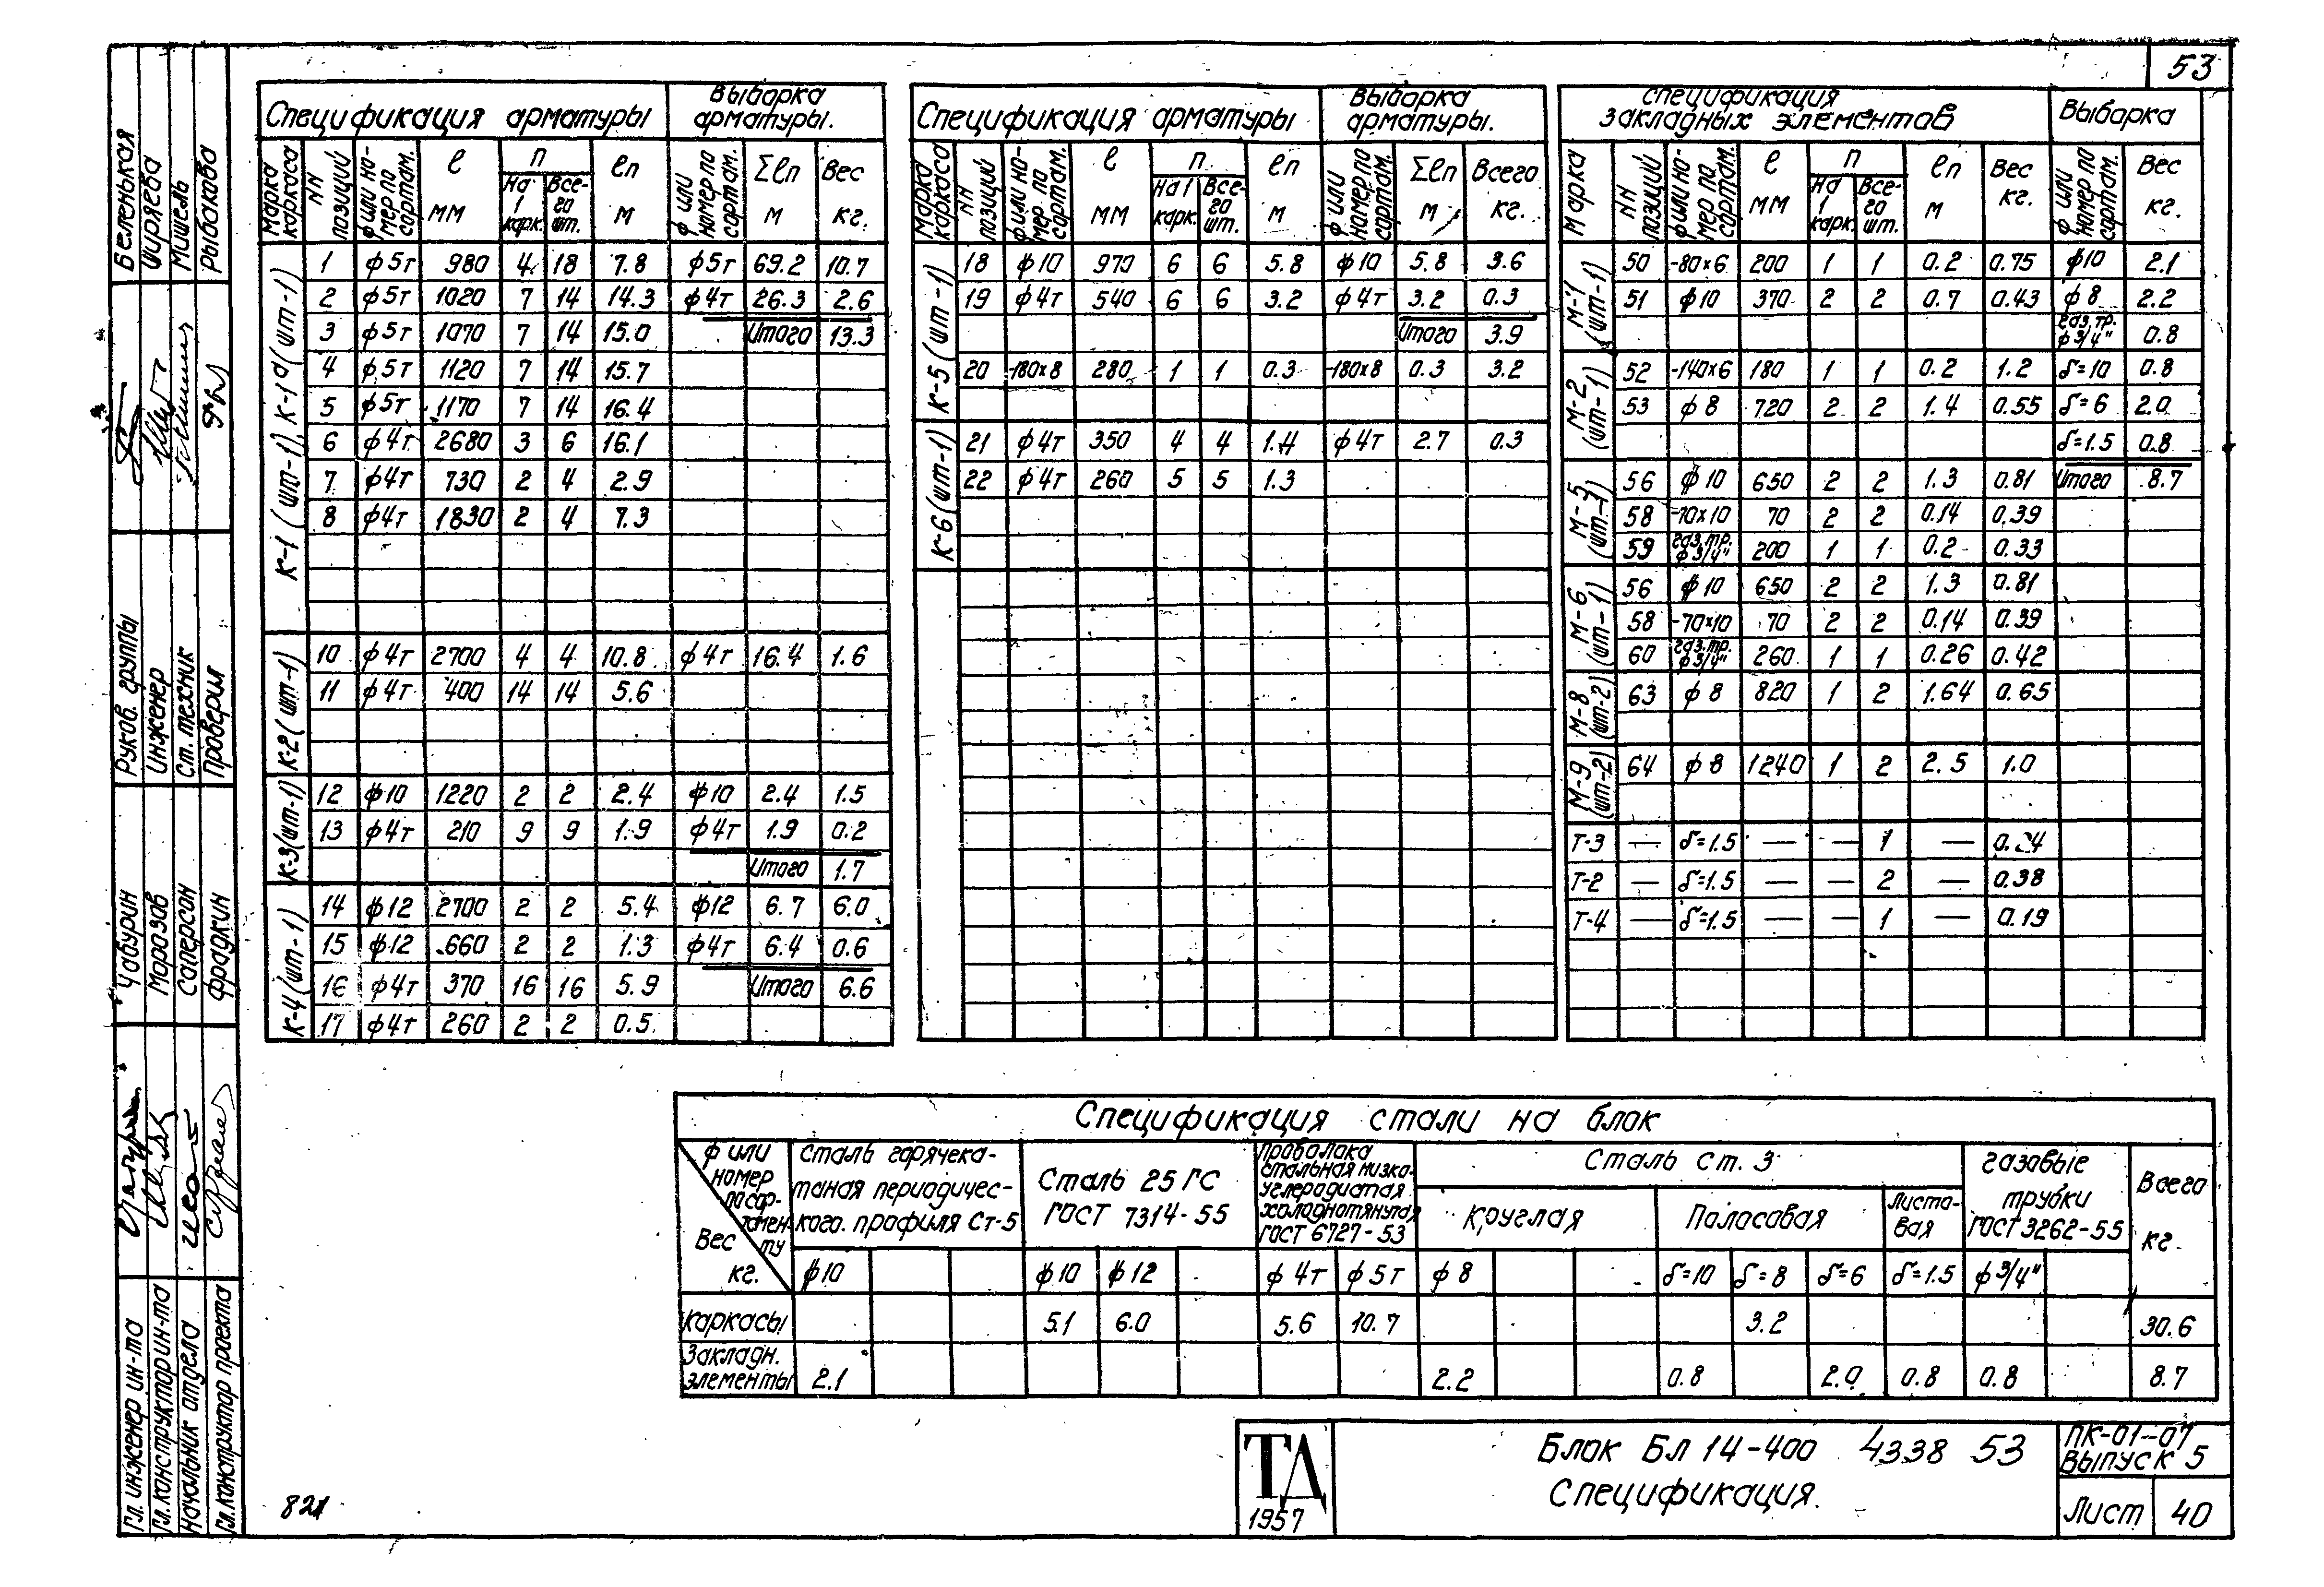 53
Спецификация арматуры
Выборка арматуры.
Марка каркаса
NN позиций
ф или номер по сортам.
ℓ мм
п
На 1 карк.
Все-го шт.
ℓп м
ф или номер по сортам.
Σℓп м
Вес кг.
К-1 (шт-1), К-1а (шт-1)
1 ф5т 980 4 18 7.8 ф5т 69.2 10.7
2 ф5т 1020 7 14 14.3 ф4т 26.3 2.6
3 ф5т 1070 7 14 15.0 Итого 13.3
4 ф5т 1120 7 14 15.7
5 ф5т 1170 7 14 16.4
6 ф4т 2680 3 6 16.1
7 ф4т 730 2 4 2.9
8 ф4т 1830 2 4 7.3
К-2 (шт-1)
10 ф4т 2700 4 4 10.8 ф4т 16.4 1.6
11 ф4т 400 14 14 5.6
К-3 (шт-1)
12 ф10 1220 2 2 2.4 ф10 2.4 1.5
13 ф4т 210 9 9 1.9 ф4т 1.9 0.2
Итого 1.7
К-4 (шт-1)
14 ф12 2700 2 2 5.4 ф12 6.7 6.0
15 ф12 660 2 2 1.3 ф4т 6.4 0.6
16 ф4т 370 16 16 5.9 Итого 6.6
17 ф4т 260 2 2 0.5
Спецификация арматуры
Выборка арматуры.
Марка каркаса
NN позиций
ф или номер по сортам.
ℓ мм
п
На 1 карк.
Все-го шт.
ℓп м
ф или номер по сортам.
Σℓп м
Всего кг.
К-5 (шт-1)
18 ф10 970 6 6 5.8 ф10 5.8 3.6
19 ф4т 540 6 6 3.2 ф4т 3.2 0.3
Итого 3.9
20 -180×8 280 1 1 0.3 -180×8 0.3 3.2
К-6 (шт-1)
21 ф4т 350 4 4 1.4 ф4т 2.7 0.3
22 ф4т 260 5 5 1.3
спецификация
закладных элементов
Выборка
Марка
NN позиций
ф или номер по сортам.
ℓ мм
п
На 1 карк.
Все-го шт.
ℓп м
Вес кг.
ф или номер по сортам.
Вес кг.
М-1 (шт-1)
50 -80×6 200 1 1 0.2 0.75 ф10 2.1
51 ф10 370 2 2 0.7 0.43 ф8 2.2
газ.тр. ф3/4" 0.8
М-2 (шт-1)
52 -140×6 180 1 1 0.2 1.2 δ=10 0.8
53 ф8 720 2 2 1.4 0.55 δ=6 2.0
δ=1.5 0.8
М-5 (шт-1)
56 ф10 650 2 2 1.3 0.81 Итого 8.7
58 -70×10 70 2 2 0.14 0.39
59 газ.тр. ф3/4" 200 1 1 0.2 0.33
М-6 (шт-1)
56 ф10 650 2 2 1.3 0.81
58 -70×10 70 2 2 0.14 0.39
60 газ.тр. ф3/4" 260 1 1 0.26 0.42
М-8 (шт-2)
63 ф8 820 1 2 1.64 0.65
М-9 (шт-2)
64 ф8 1240 1 2 2.5 1.0
Т-3 — δ=1.5 — — 1 — 0.24
Т-2 — δ=1.5 — — 2 — 0.38
Т-4 — δ=1.5 — — 1 — 0.19
Спецификация стали на блок
ф или номер по сортаменту
Вес кг.
Сталь горячека-
таная периодичес-
кого. профиля Ст-5
Сталь 25 ГС
ГОСТ 7314-55
Проволока
стальная низко-
углеродистая
холоднотянутая
ГОСТ 6727-53
Сталь ст. 3
Круглая
Полосовая
Листо-
вая
газовые
трубки
ГОСТ 3262-55
Всего кг.
ф10 ф10 ф12 ф4т ф5т ф8 δ=10 δ=8 δ=6 δ=1.5 ф3/4"
каркасы 5.1 6.0 5.6 10.7 3.2 30.6
Закладн. элементы 2.1 2.2 0.8 2.0 0.8 0.8 8.7
ТД
1957
Блок Бл 14-400 4338 53
Спецификация.
ПК-01-07
Выпуск 5
Лист 40
821
Беленькая
Ширяева
Мишель
Рыбакова
Руков. группы
Инженер
Ст. техник
Проверил
Чабурин
Морозов
Сагерсан
Фрадкин
Гл. инженер ин-та
Гл. конструктор ин-та
Начальник отдела
Гл. конструктор проекта